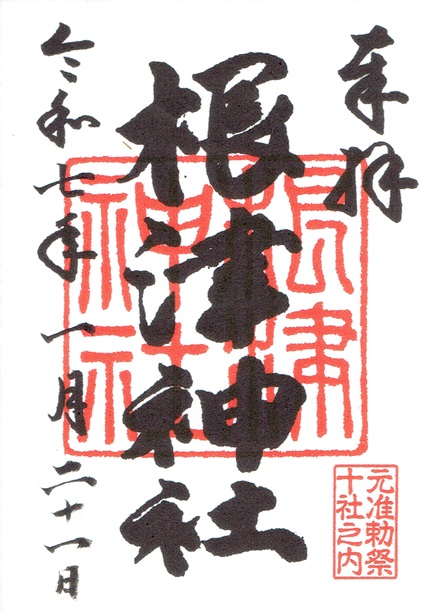 奉拝
根津神社
令和七年一月二十一日
根津
神社
元准勅祭
十社之内